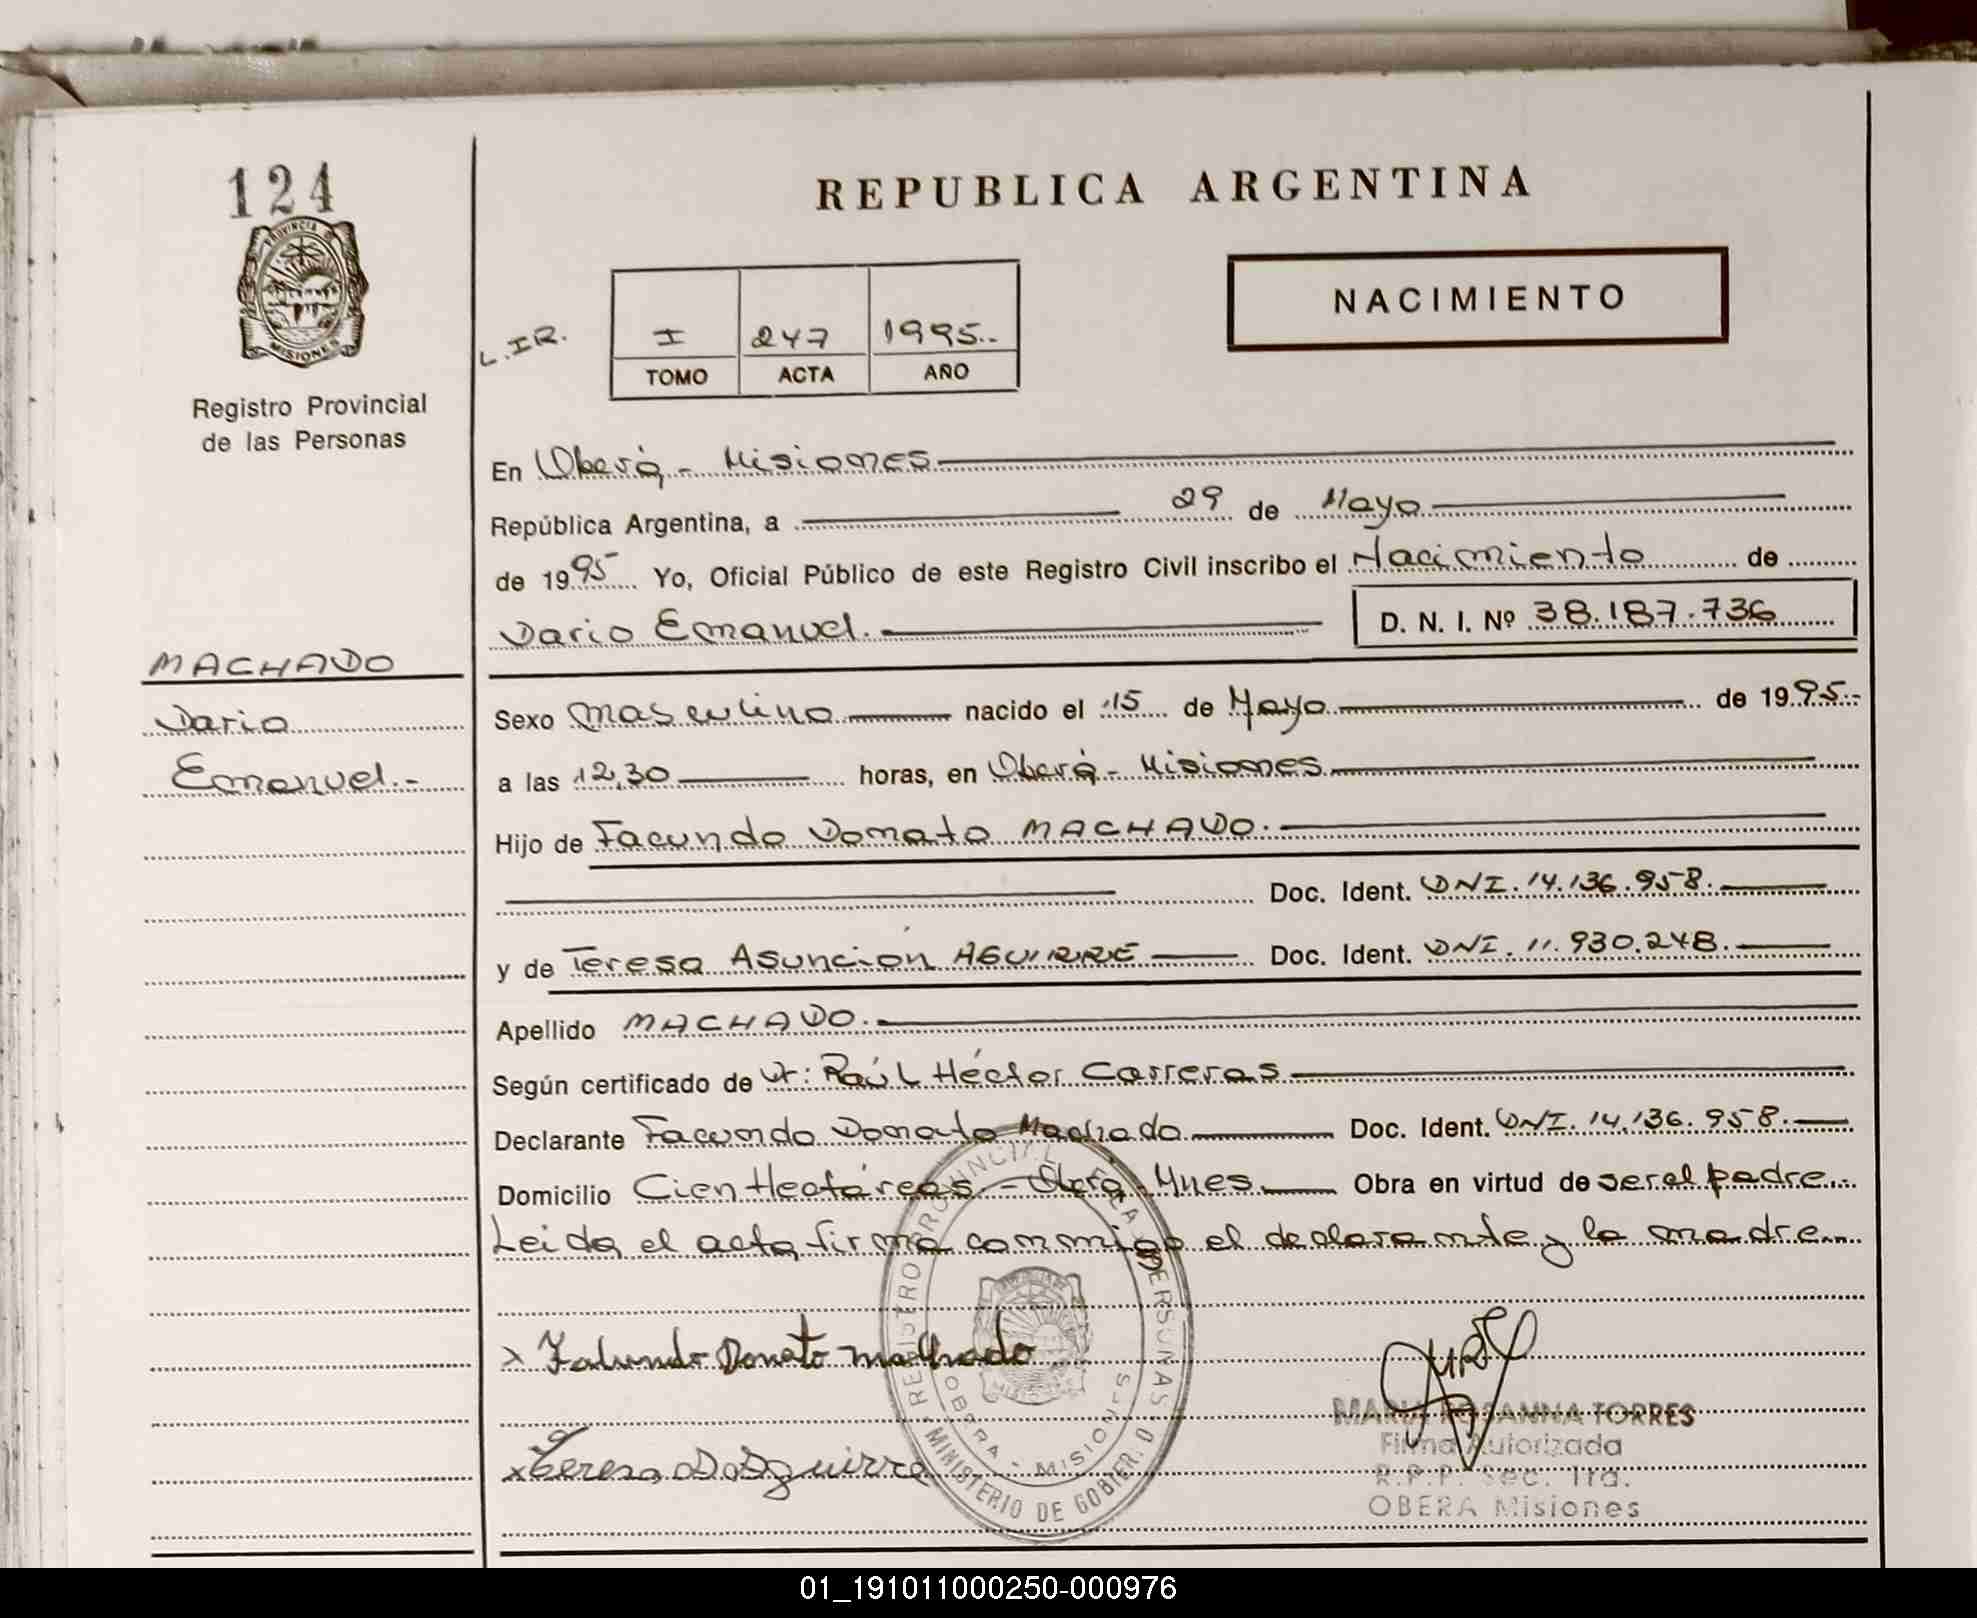 124
REPUBLICA ARGENTINA
PROVINCIA DE
MISIONES
Registro Provincial
de las Personas
NACIMIENTO
L.IR.
I 247 1995..
TOMO ACTA AÑO
En Oberá - Misiones
República Argentina, a 29 de Mayo
de 1995 Yo, Oficial Público de este Registro Civil inscribo el Nacimiento de
Dario Emanuel. D. N. I. Nº 38.187.736
MACHADO
Dario
Emanuel.-
Sexo masculino nacido el 15 de Mayo de 1995.-
a las 12,30 horas, en Oberá - Misiones
Hijo de Facundo Donato MACHADO.
Doc. Ident. DNI. 14.136.958.
y de Teresa Asunción AGUIRRE Doc. Ident. DNI. 11.930.248.
Apellido MACHADO.
Según certificado de Dr: Raúl Héctor Carreras
Declarante Facundo Donato Machado Doc. Ident. DNI. 14.136.958.
Domicilio Cien Hectáreas - Oberá - Mnes Obra en virtud de ser el padre..-
Leida el acta firma conmigo el declarante y la madre...
x Facundo Donato machado
x Teresa A D Aguirre
REGISTRO PROVINCIAL DE LA PERSONAS
OBERA - MISIONES
MINISTERIO DE GOBIER.
MARIA ROSANNA TORRES
Firma Autorizada
R.P.P. Sec. 1ra.
OBERA Misiones
01_191011000250-000976